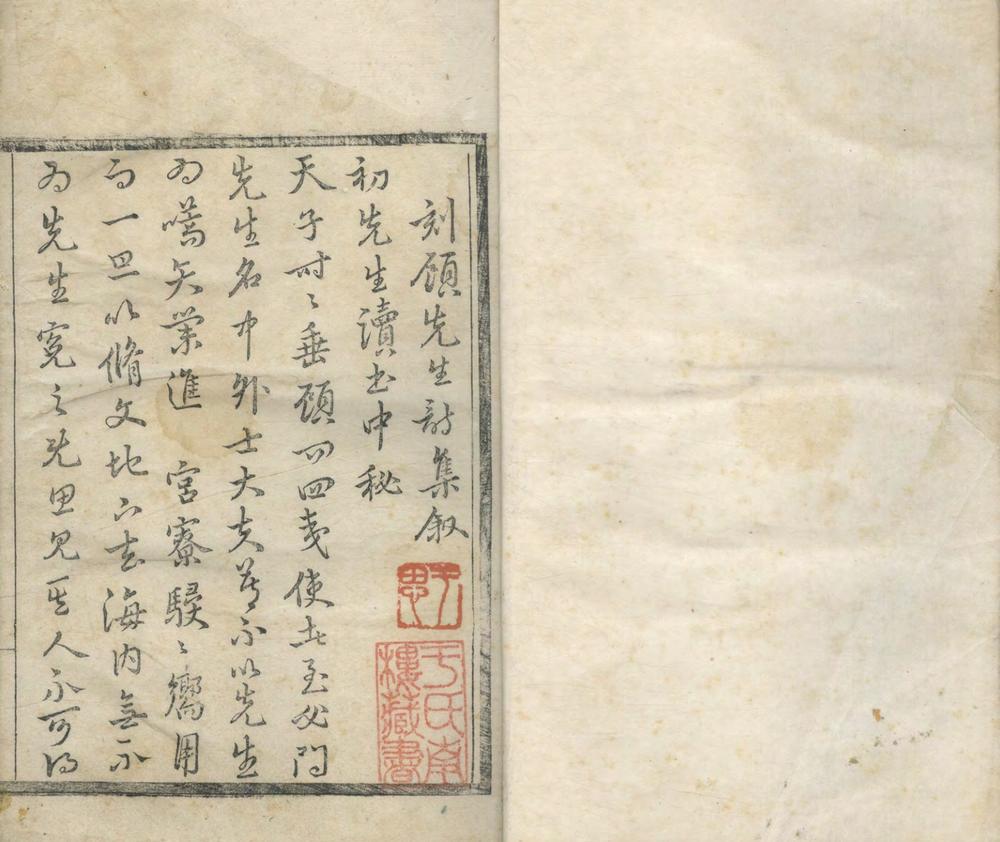 刻顧先生詩集叙
初先生讀書中秘
天子時〻垂顧問四夷使者至必問
先生名中外士大夫莫不以先生
為嚆矢業進 宮寮駸〻嚮用
而一旦以脩文地下去海内無不
為先生寃之既思見其人不可得
于
思
于氏
樓藏書